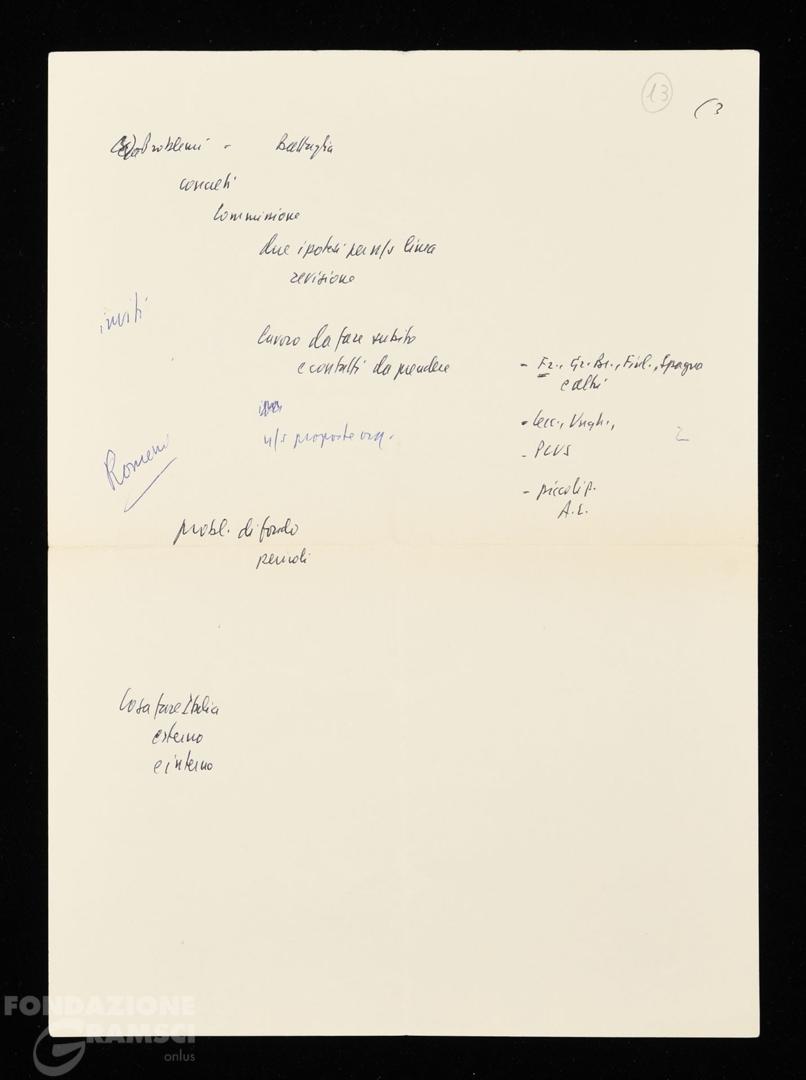 13
(3
Problemi - Battaglia
concreti
Commissione
due ipotesi per n/s linea
revisione
inviti
lavoro da fare subito
e contatti da prendere
- Fr., Gr. Br., Finl., Spagna
e altri
n/s proposte org.
- Cec., Ungh.,
2
- PCUS
Romeni
- piccoli p.
A.L.
probl. di fondo
periodi
Cosa fare Italia
esterno
e interno
FONDAZIONE
GRAMSCI
onlus